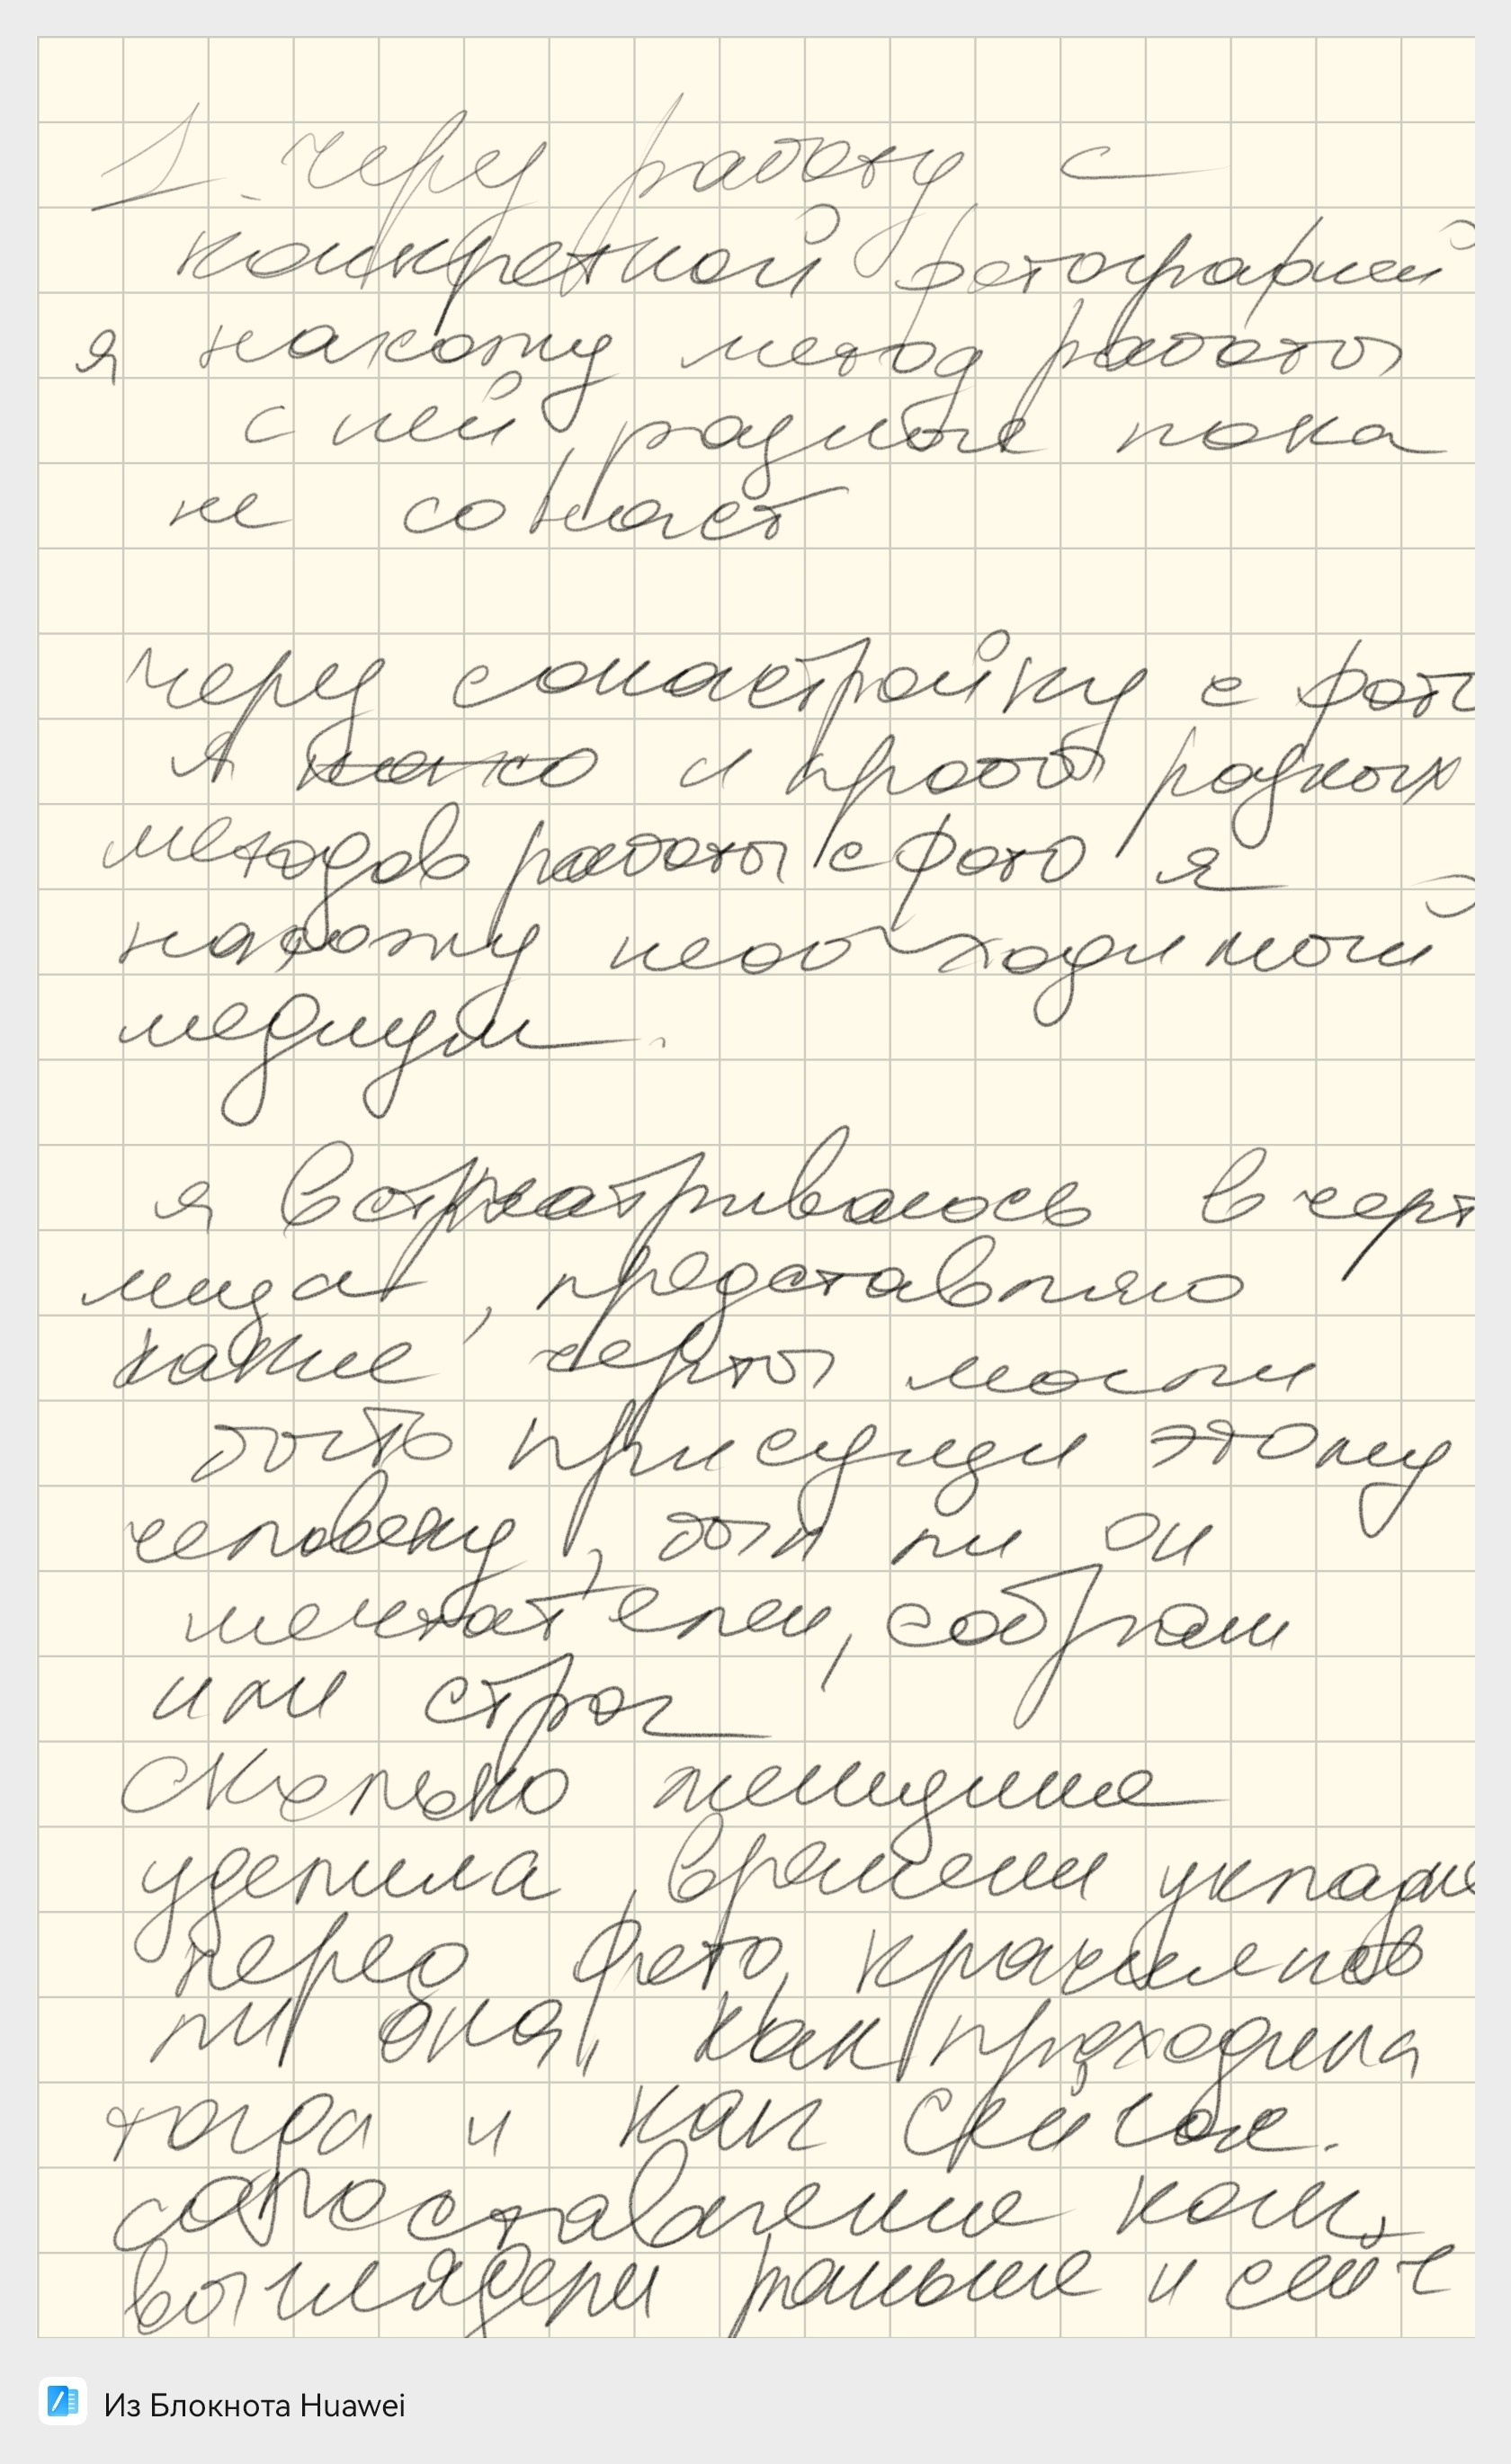 1. через работу с
конкретной фотографией
я нахожу метод работы
с ней, раньше пока
не
через сонастройку с фот
я нахо и проб разных
методов работы с фото я
нахожу необходимый
медиум.
я всматриваюсь в черт
лица, представляю
какие черты могли
быть присущи этому
человеку, был ли он
мечтателем, собран
или строг
Сколько женщина
уделила времени укладке
перед фото, красилась
ли она, как проходила
тогда и как сейчас.
сопоставление как
выглядели раньше и сейч
Из Блокнота Huawei